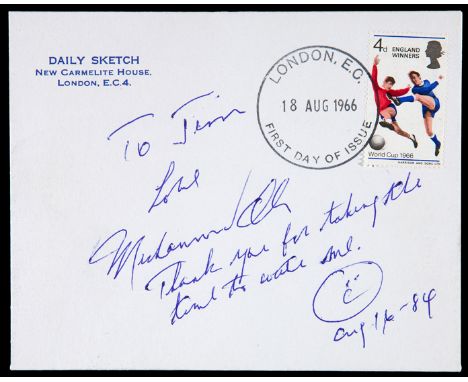 DAILY SKETCH
NEW CARMELITE HOUSE,
LONDON, E.C.4.
LONDON, E.C.
18 AUG 1966
FIRST DAY OF ISSUE
4d ENGLAND
WINNERS
World Cup 1966
HARRISON AND SONS LTD
To Jim
Love
Muhammad Ali
Thank you for taking the
time to write me.
Aug 16-84